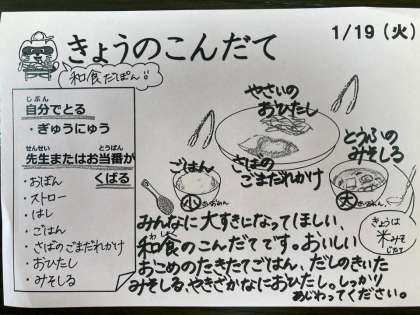 きょうのこんだて
1/19（火）
和食だぽん!!
じぶん
自分でとる
・ぎゅうにゅう
せんせい　とうばん
先生またはお当番が
くばる
・おぼん
・ストロー
・はし
・ごはん
・さばのごまだれかけ
・おひたし
・みそしる
やさいの
おひたし
さばの
ごまだれかけ
ごはん
小
とうふの
みそしる
大
きょうは
米みそ
みんなに大すきになってほしい、
和食のこんだてです。おいしい
おこめのたきたてごはん、だしのきいた
みそしる、やきざかなにおひたし。しっかり
あじわってください。